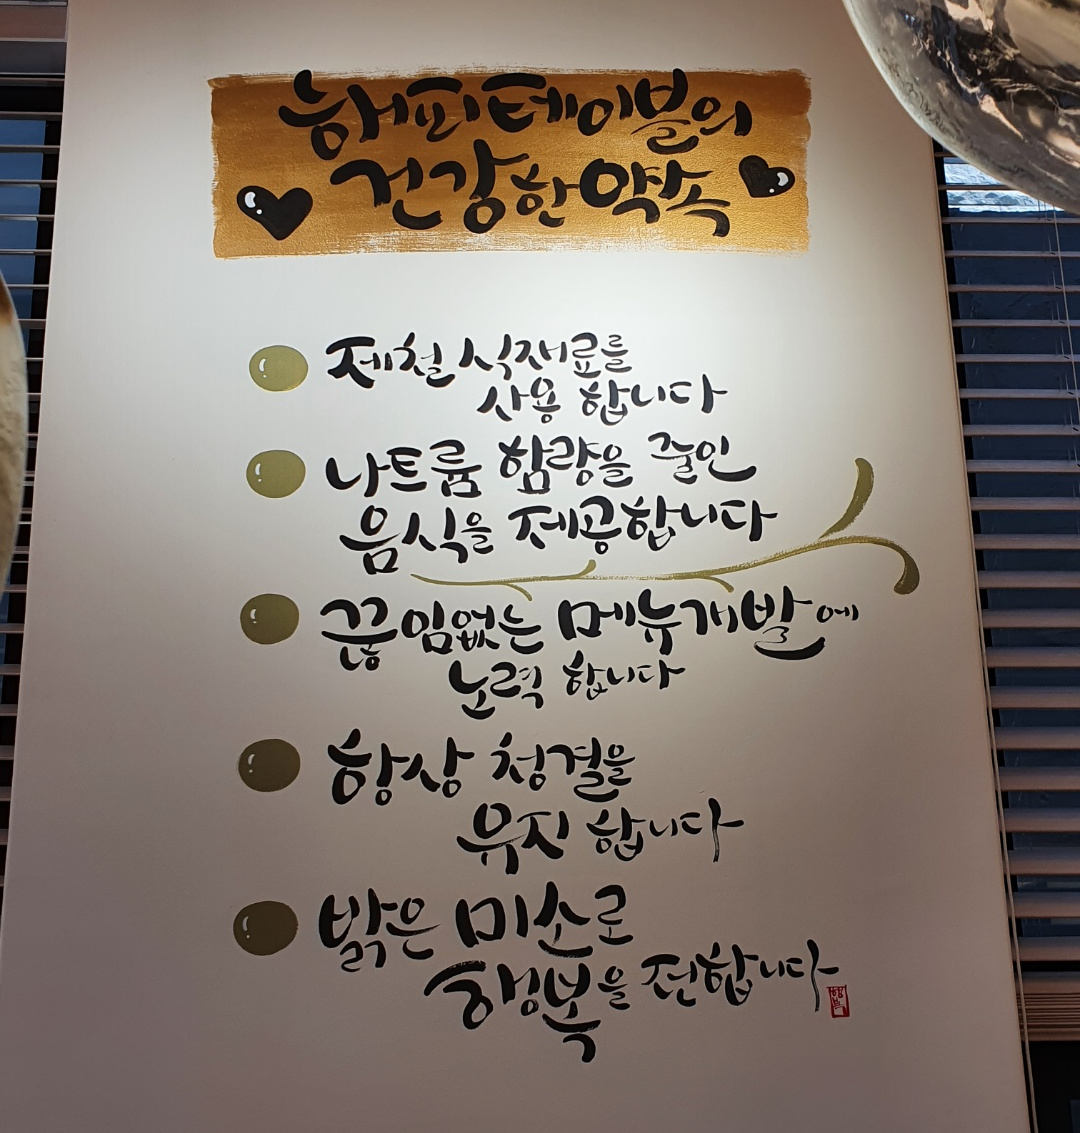 해피테이블의
건강한 약속
제철 식재료를
사용 합니다
나트륨 함량을 줄인
음식을 제공합니다
끊임없는 메뉴개발에
노력 합니다
항상 청결을
유지 합니다
밝은 미소로
행복을 전합니다